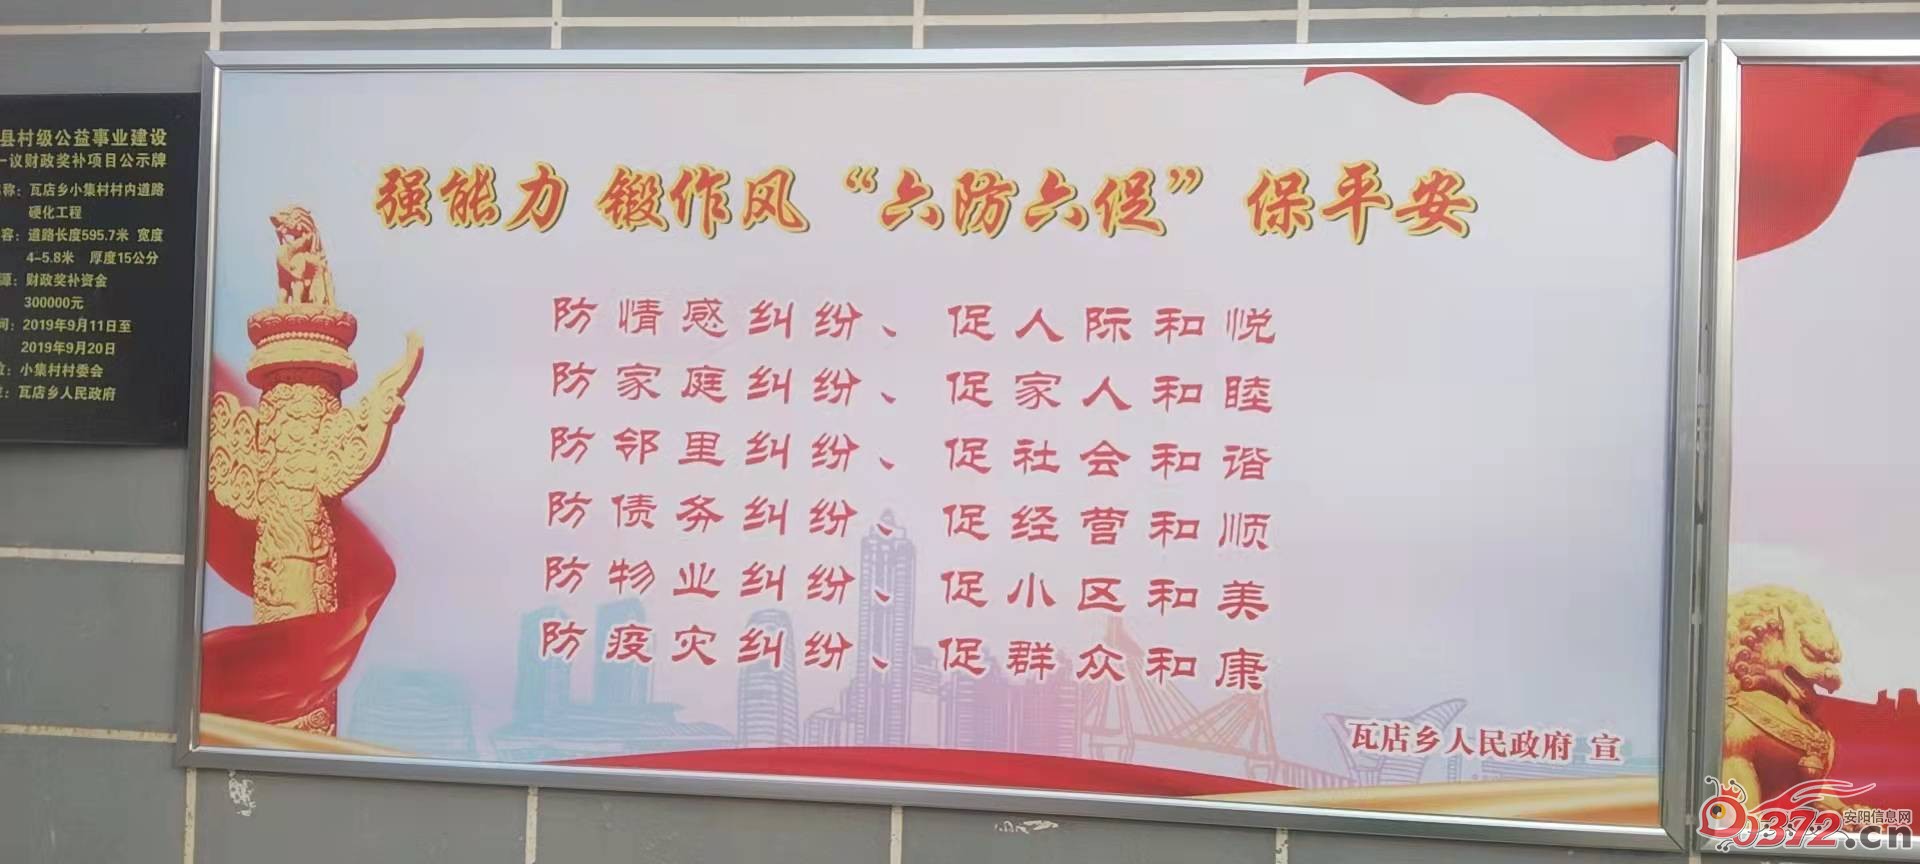 县村级公益事业建设
一议财政奖补项目公示牌
称：瓦店乡小集村村内道路
硬化工程
容：道路长度595.7米 宽度
4-5.8米 厚度15公分
源：财政奖补资金
300000元
间：2019年9月11日至
2019年9月20日
小集村村委会
瓦店乡人民政府
强能力 锻作风 “六防六促” 保平安
防情感纠纷、促人际和悦
防家庭纠纷、促家人和睦
防邻里纠纷、促社会和谐
防债务纠纷、促经营和顺
防物业纠纷、促小区和美
防疫灾纠纷、促群众和康
瓦店乡人民政府 宣
0372.cn
安阳信息网